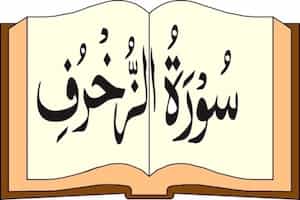 سُوْرَةُ الزُّخْرُفِ